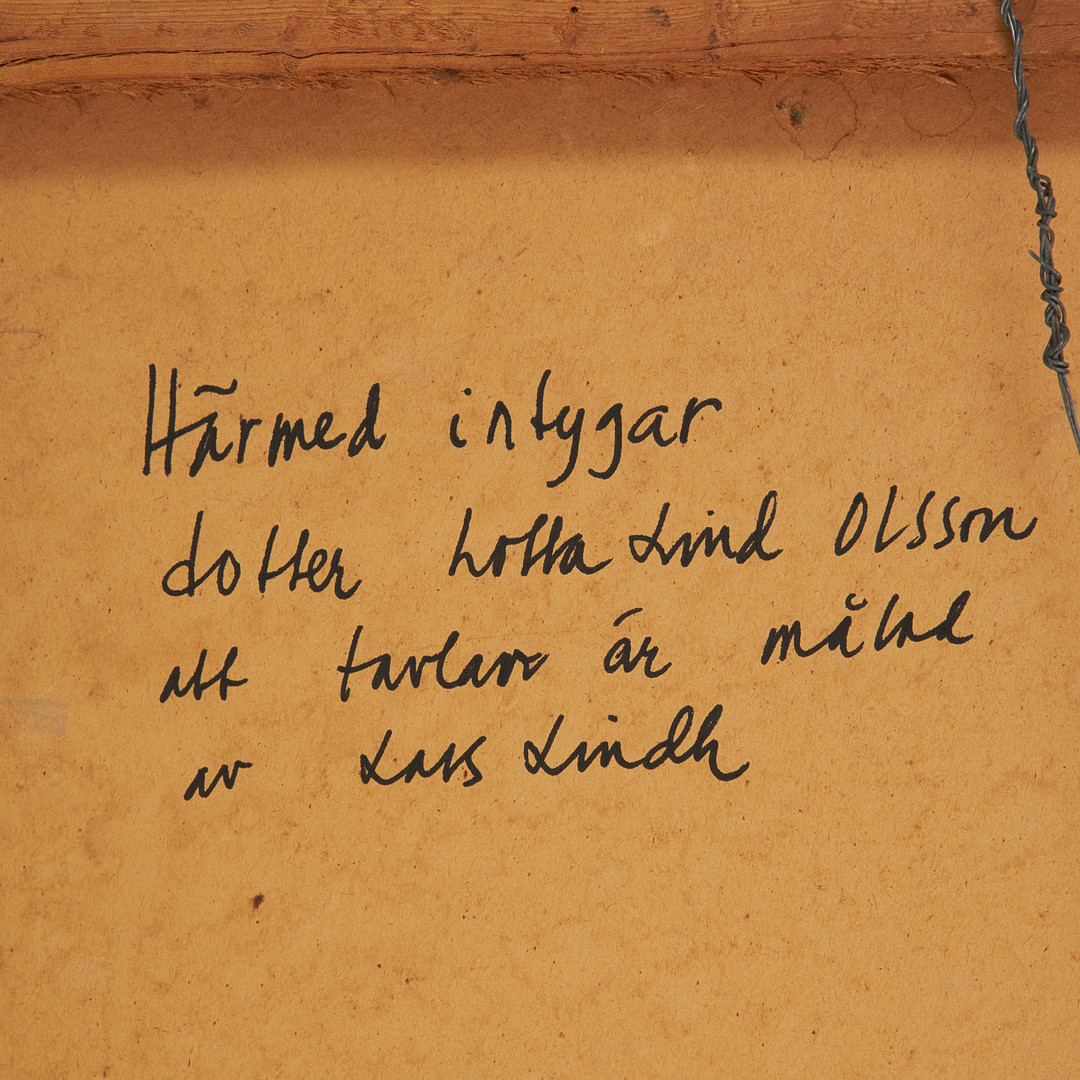 Härmed intygar
dotter Lotta Lind Olsson
att tavlan är målad
av Lars Lindh